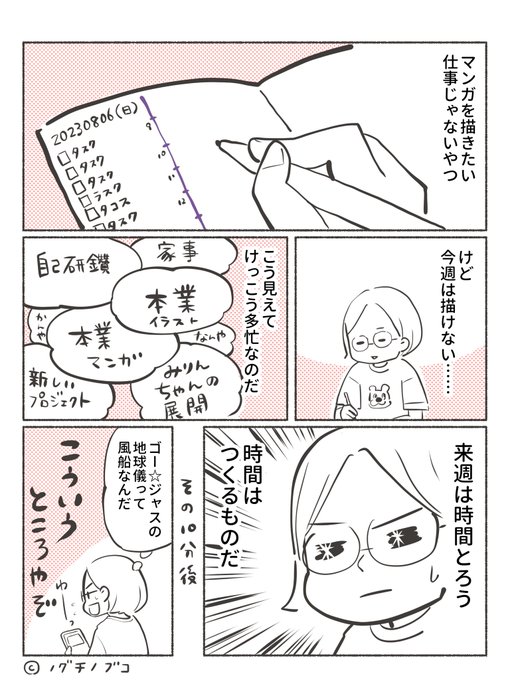 マンガを描きたい
仕事じゃないやつ
20230806(日)
タスク
タスク
タスク
ラスク
タコス
タスク
9
10
11
12
けど
今週は描けない……
こう見えて
けっこう多忙なのだ
家事
自己研鑽
本業
イラスト
かんや
なんや
本業
マンガ
新しい
プロジェクト
みりん
ちゃんの
展開
来週は時間とろう
時間は
つくるものだ
その10分後
ゴー☆ジャスの
地球儀って
風船なんだ
わーっ
こういう
ところやぞ
©ノグチノブコ